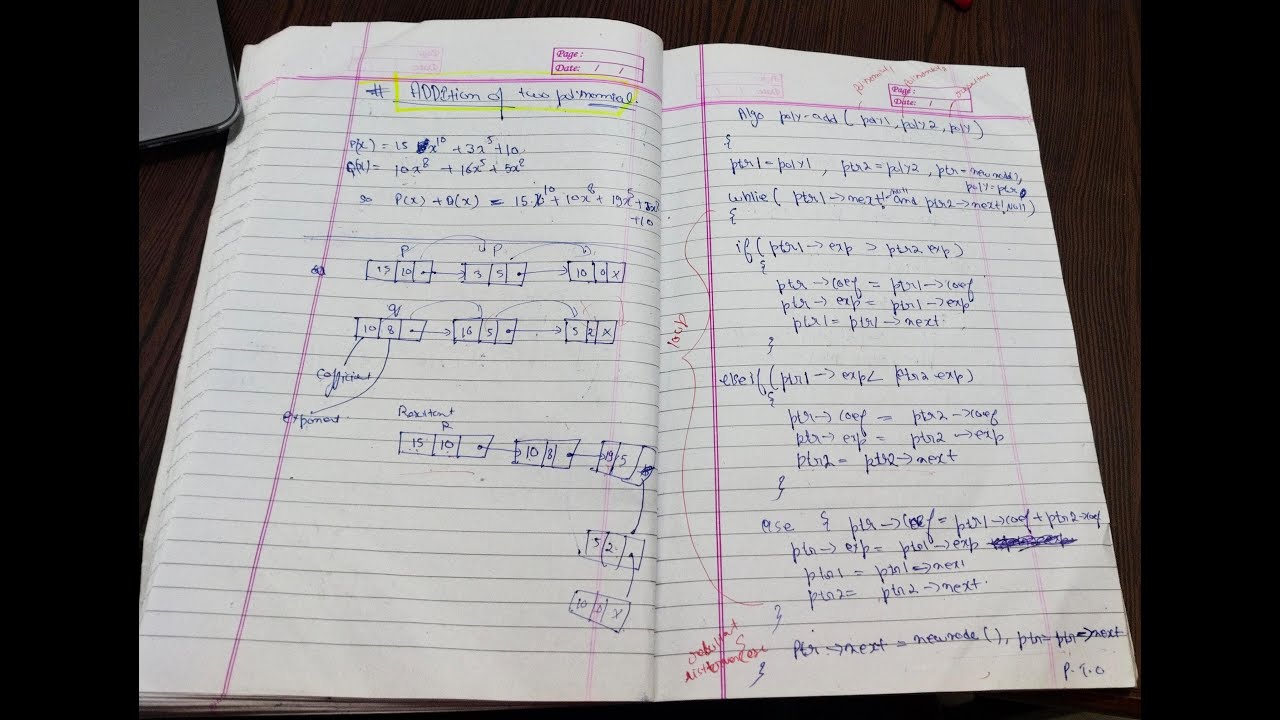 Page:
Date: / /
# ADDition of two polinomial.
P(x) = 15 x^10 + 3x^5 + 10
Q(x) = 10x^8 + 16x^5 + 5x^2
so P(x) + Q(x) = 15x^10 + 10x^8 + 19x^5 + 5x^2
+ 10
P P
15 10 3 5 10 0 X
q
10 8 16 5 5 2 X
Cofficient
exponent
Resultant
R
15 10 10 8 19 5
5 2
10 0 X
Page:
Date: / /
Algo poly-add ( poly1, poly2, poly)
{
ptr1 = poly1 , ptr2 = poly2 , ptr = newnode(),
poly = ptr
while ( ptr1 → next != null and ptr2 → next != null)
{
if ( ptr1 → exp > ptr2 exp)
{
ptr → coef = ptr1 → coef
ptr → exp = ptr1 → exp
ptr1 = ptr1 → next.
}
else if ( ptr1 → exp < ptr2 exp)
{
ptr → coef = ptr2 → coef
ptr → exp = ptr2 → exp
ptr2 = ptr2 → next
}
else { ptr → coef = ptr1 → coef + ptr2 → coef
ptr → exp = ptr1 → exp
ptr1 = ptr1 → next
ptr2 = ptr2 → next.
}
loop
Ptr → next = newnode(), ptr = ptr → next
}
P.T.O